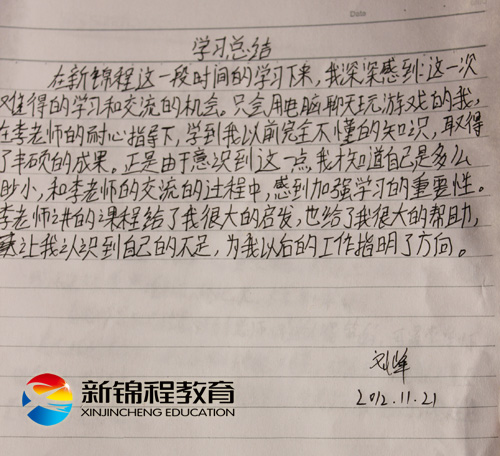 Date
学习总结
在新锦程这一段时间的学习下来，我深深感到：这一次
难得的学习和交流的机会。只会用电脑聊天玩游戏的我，
在李老师的耐心指导下，学到我以前完全不懂的知识，取得
了丰硕的成果。正是由于意识到这一点，我才知道自己是多么
渺小，和李老师的交流的过程中，感到加强学习的重要性。
李老师讲的课程给了我很大的启发，也给了我很大的帮助，
让我认识到自己的不足，为我以后的工作指明了方向。
刘峰
2012.11.21
新锦程教育
XINJINCHENG EDUCATION